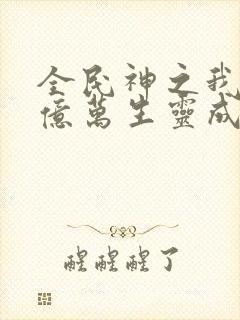 全民神之我
億萬生靈成
醒醒醒了